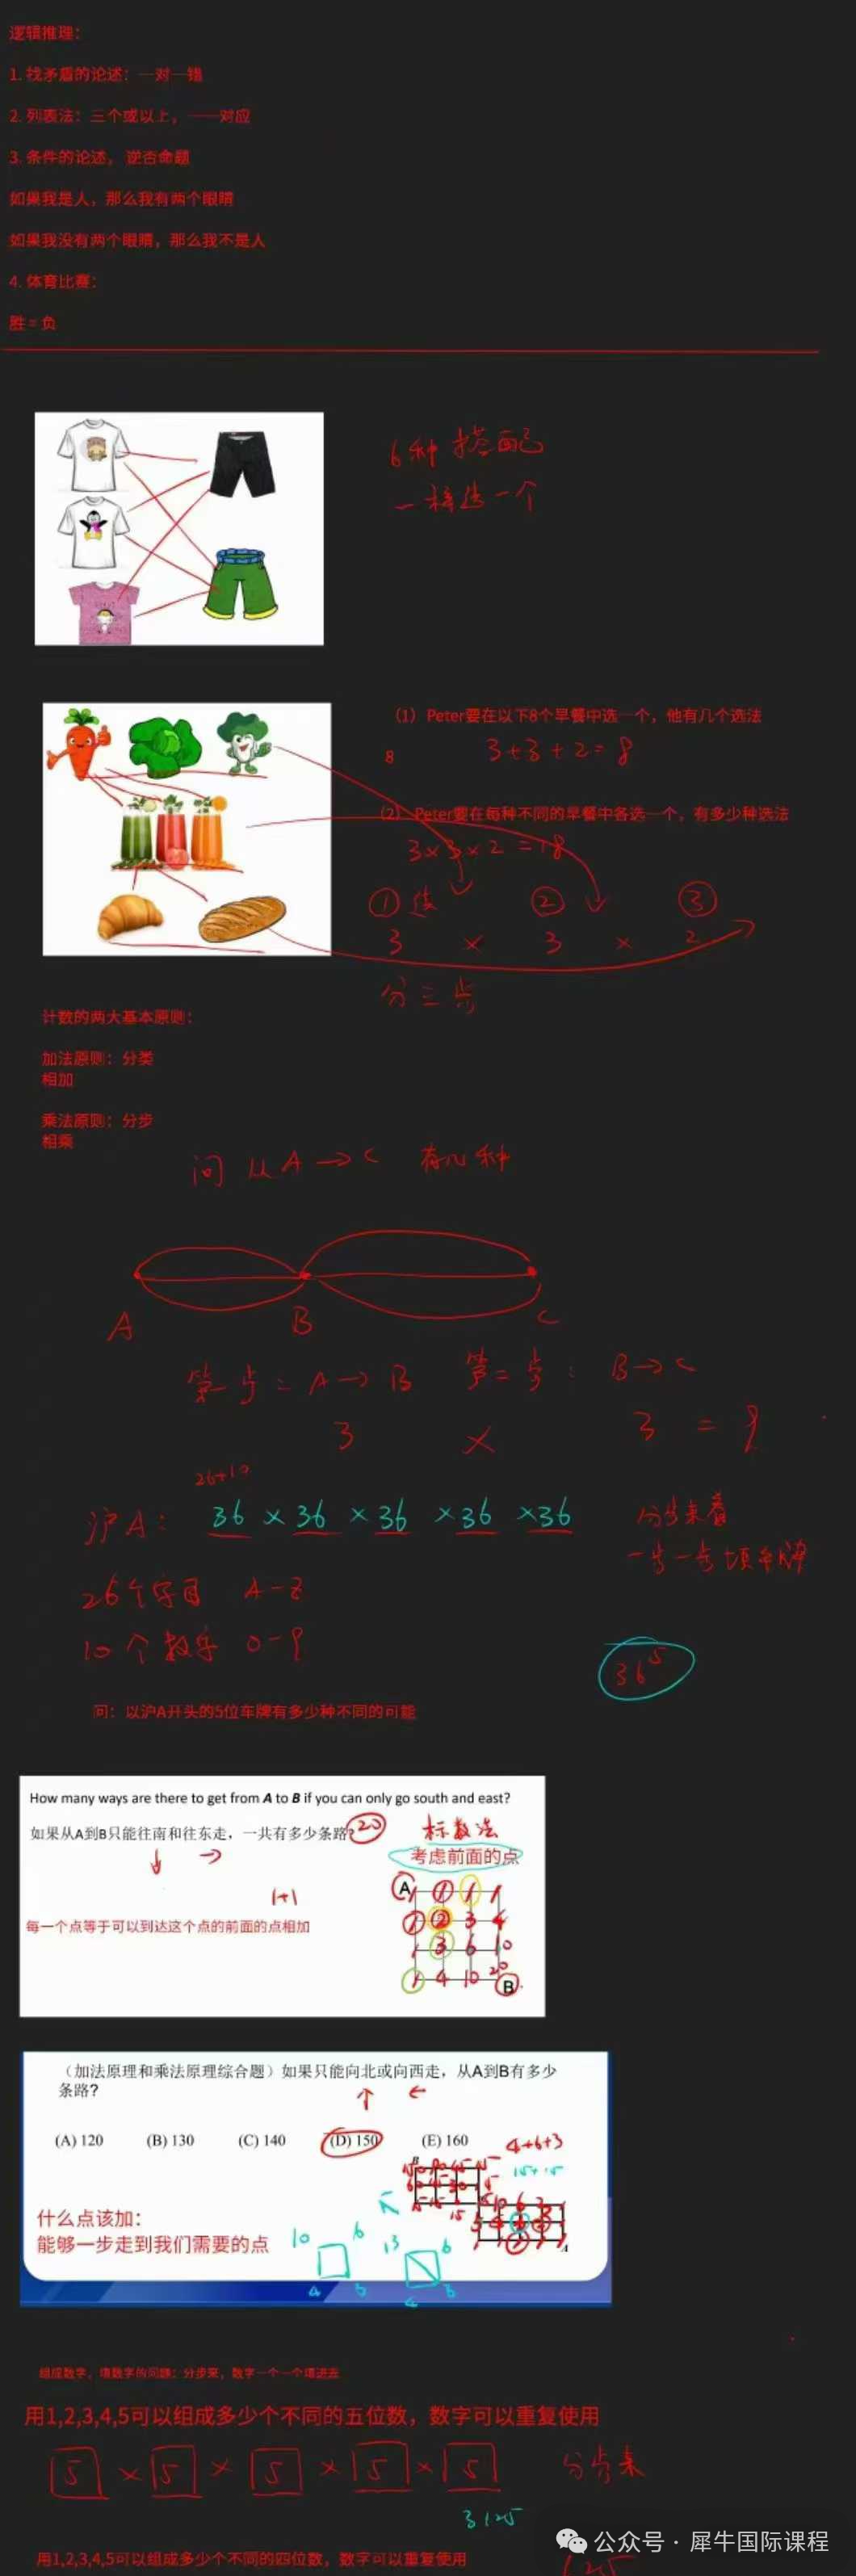 逻辑推理：
1. 找矛盾的论述：一对一错
2. 列表法：三个或以上，一一对应
3. 条件的论述， 逆否命题
如果我是人，那么我有两个眼睛
如果我没有两个眼睛，那么我不是人
4. 体育比赛：
胜 = 负
6种 搭配
一样选一个
（1）Peter要在以下8个早餐中选一个，他有几个选法
8 3+3+2=8
（2） Peter要在每种不同的早餐中各选一个，有多少种选法
3×3×2=18
① 选 ② ③
3 × 3 × 2
分三步
计数的两大基本原则：
加法原则：分类
相加
乘法原则：分步
相乘
问 从A→C 有几种
A B C
第一步：A→B 第二步：B→C
3 × 3 = 9
26+10
沪A： 36 × 36 × 36 × 36 × 36
分步来看
一步一步填车牌
26个字母 A-Z
10个数字 0-9
36⁵
问：以沪A开头的5位车牌有多少种不同的可能
How many ways are there to get from A to B if you can only go south and east?
如果从A到B只能往南和往东走，一共有多少条路？ 20
↓ →
标数法
考虑前面的点
1+1
每一个点等于可以到达这个点的前面的点相加
A 1 1 1
1 2 3 4
1 3 6 10
1 4 10 20
B
（加法原理和乘法原理综合题）如果只能向北或向西走，从A到B有多少
条路？
↑ ←
(A) 120 (B) 130 (C) 140 (D) 150 (E) 160
4+6+3
15+15
什么点该加：
能够一步走到我们需要的点
10 6 13 6
4 3 4 3
组成数字，填数字的问题：分步来，数字一个一个填进去
用1,2,3,4,5可以组成多少个不同的五位数，数字可以重复使用
5 × 5 × 5 × 5 × 5 分步来
3125
用1,2,3,4,5可以组成多少个不同的四位数，数字可以重复使用
公众号 · 犀牛国际课程